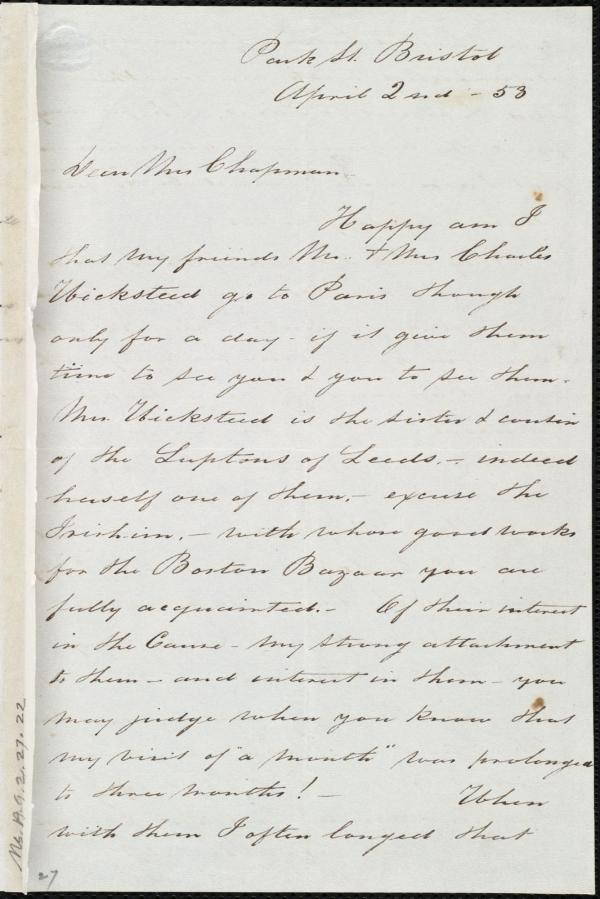 Park St. Bristol
April 2nd - 53
Dear Mrs Chapman
Happy am I
that my friends Mr. & Mrs Charles
Wicksteed go to Paris though
only for a day - if it give them
time to see you & you to see them.
Mrs. Wicksteed is the sister & cousin
of the Luptons of Leeds, - indeed
herself one of them, - excuse the
Irishism, - with whose good works
for the Boston Bazaar you are
fully acquainted. - Of their interest
in the Cause - my strong attachment
to them - and interest in them - you
may judge when you know that
my visit of "a month" was prolonged
to three months! - When
with them I often longed that
Ms. A. 9. 2. 27. 22
27